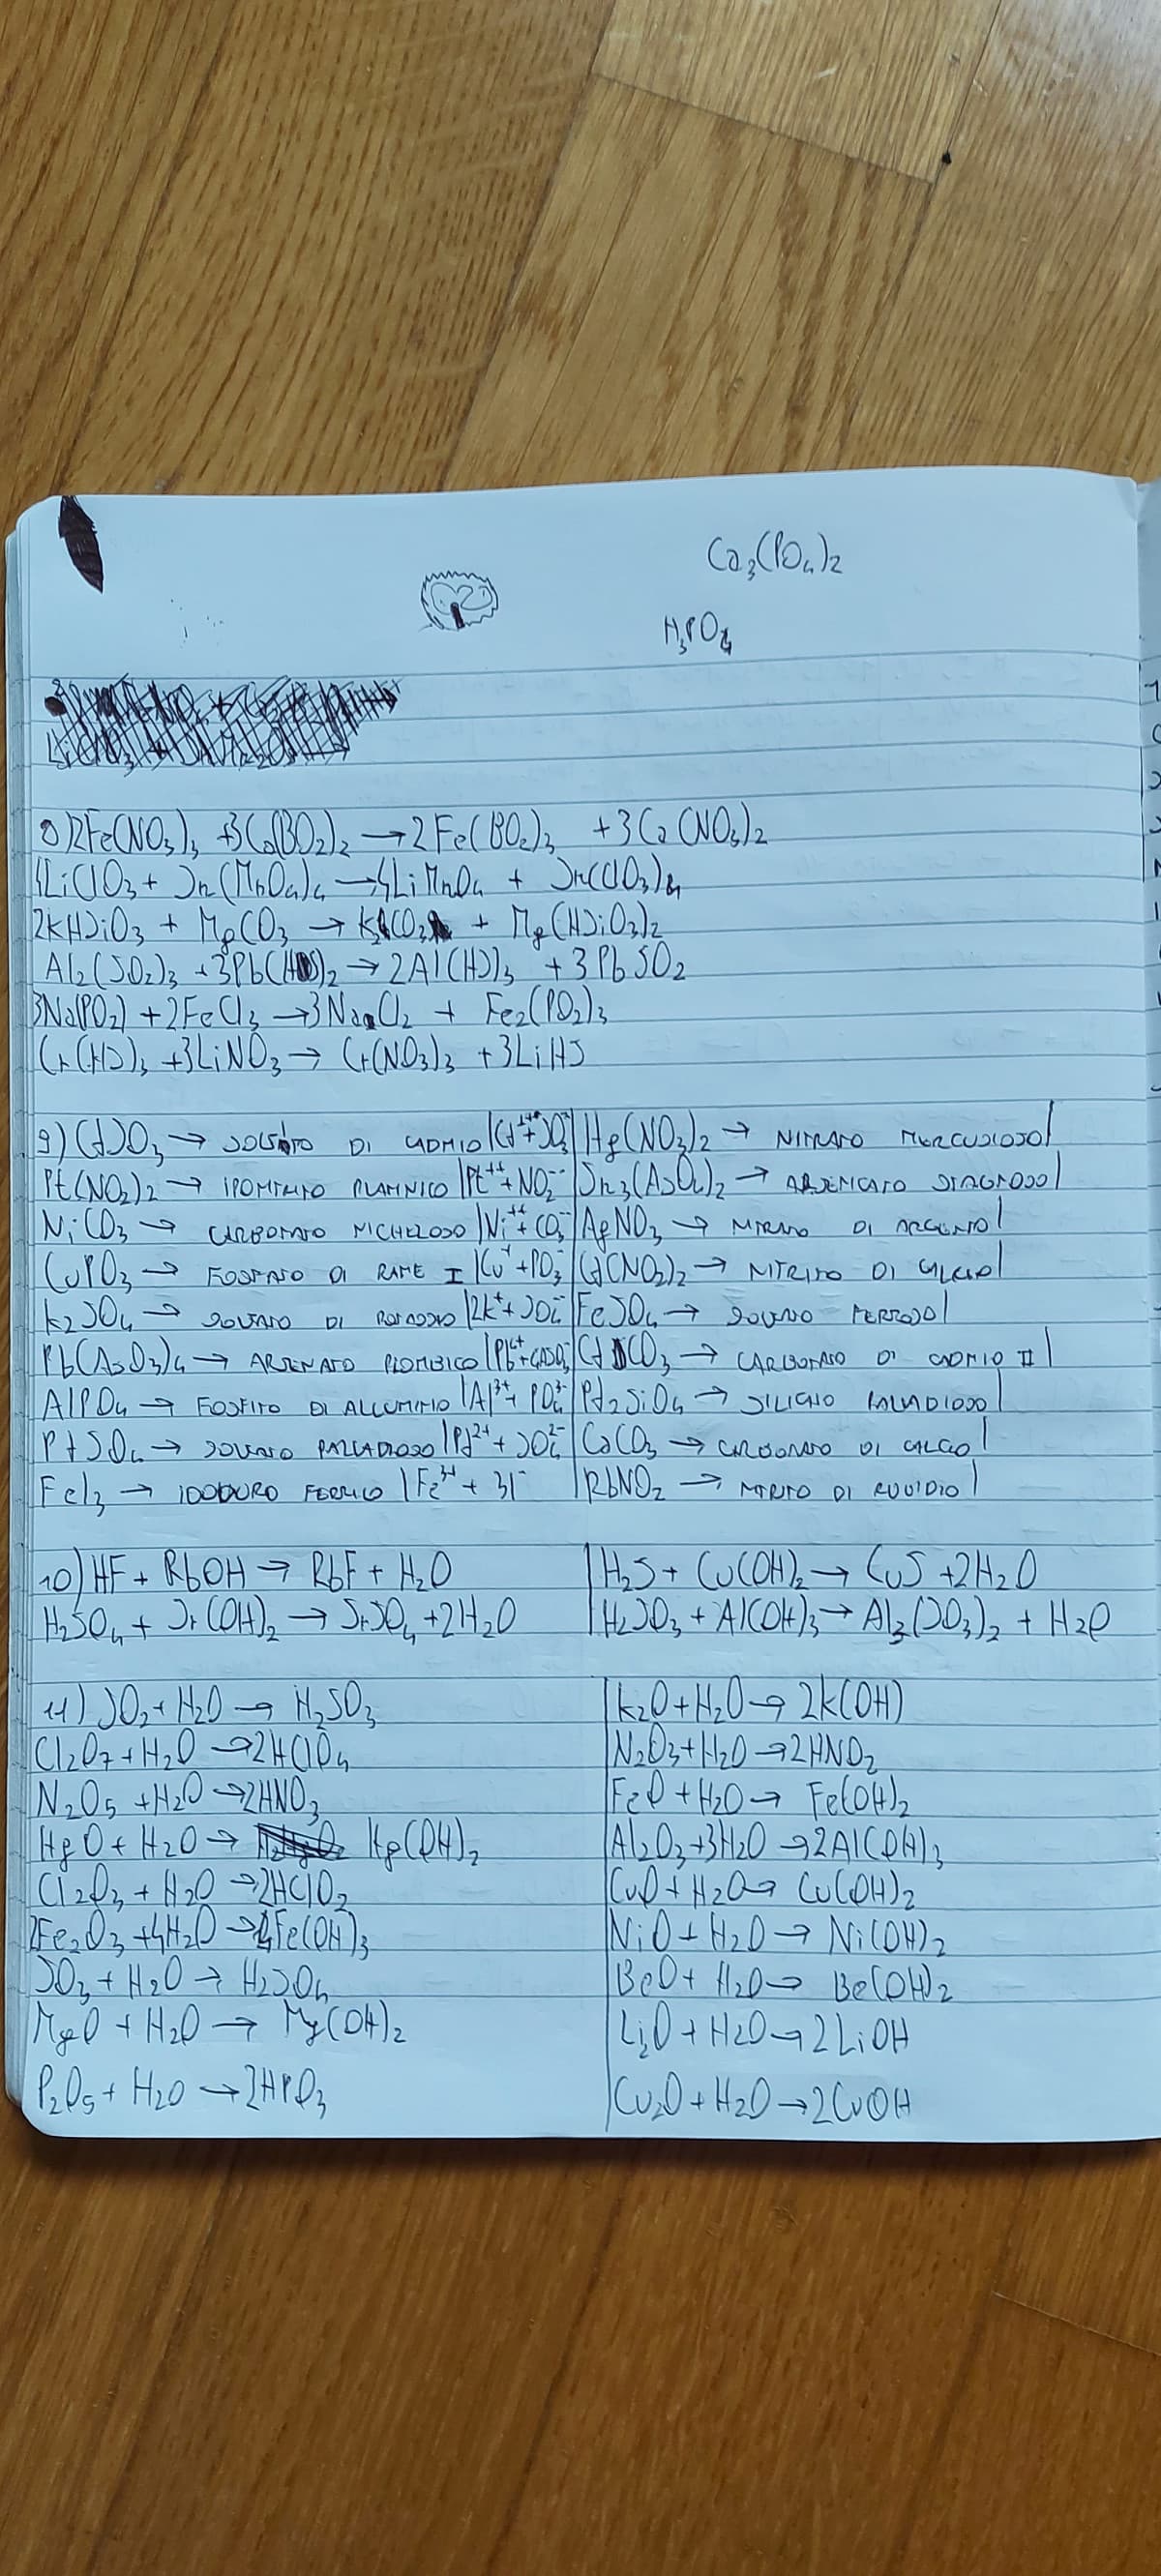 Ca₃(PO₄)₂
H₃PO₄
8) 2Fe(NO₃)₃ + 3Ca(BO₂)₂ → 2Fe(BO₂)₃ + 3Ca(NO₃)₂
4LiClO₃ + Sn(MnO₄)₄ → 4LiMnO₄ + Sn(ClO₃)₄
2KHSiO₃ + MgCO₃ → K₂CO₃ + Mg(HSiO₃)₂
Al₂(SO₂)₃ + 3Pb(HS)₂ → 2Al(HS)₃ + 3PbSO₂
3Na(PO₂) + 2FeCl₃ → 3NaCl₂ + Fe₂(PO₂)₃
Cr(HS)₃ + 3LiNO₃ → Cr(NO₃)₃ + 3LiHS
9) CdSO₃ → DI CADMIO | Hg(NO₃)₂ → NITRATO MERCURIOSO |
Pt(NO₂)₂ → | Pt⁺⁺ + NO₂⁻⁻ | Sn₃(AsO₄)₂ → ARSENICATO STAGNOSO |
NiCO₃ → CARBONATO NICHELOSO | Ni⁺⁺ + CO₃⁻⁻ | AgNO₃ → NITRATO DI ARGENTO |
CuPO₃ → FOSFATO DI RAME I | Cu⁺ + PO₃⁻ | Cd(NO₂)₂ → NITRITO DI CALCIO |
K₂SO₄ → SOLFATO DI POTASSIO | 2K⁺ + SO₄⁻⁻ | FeSO₄ → SOLFATO FERROSO |
Pb(AsO₃)₄ → ARSENATO PIOMBICO | CdCO₃ → CARBONATO DI CADMIO II |
AlPO₄ → FOSFITO DI ALLUMINIO | Al³⁺ + PO₄³⁻ | Pd₂SiO₄ → SILICATO PALLADIOSO |
PdSO₄ → SOLFATO PALLADIOSO | Pd²⁺ + SO₄²⁻ | CaCO₃ → CARBONATO DI CALCIO |
FeI₃ → IODURO FERRICO | Fe³⁺ + 3I⁻ | RbNO₂ → NITRITO DI RUBIDIO |
10) HF + RbOH → RbF + H₂O | H₂S + Cu(OH)₂ → CuS + 2H₂O
H₂SO₄ + Sr(OH)₂ → SrSO₄ + 2H₂O | H₂SO₃ + Al(OH)₃ → Al₃(SO₃)₂ + H₂O
11) SO₂ + H₂O → H₂SO₃ | K₂O + H₂O → 2K(OH)
Cl₂O₇ + H₂O → 2HClO₄ | N₂O₃ + H₂O → 2HNO₂
N₂O₅ + H₂O → 2HNO₃ | FeO + H₂O → Fe(OH)₂
HgO + H₂O → Hg(OH)₂ | Al₂O₃ + 3H₂O → 2Al(OH)₃
Cl₂O₃ + H₂O → 2HClO₂ | CuO + H₂O → Cu(OH)₂
2Fe₂O₃ + 4H₂O → 4Fe(OH)₃ | NiO + H₂O → Ni(OH)₂
SO₃ + H₂O → H₂SO₄ | BeO + H₂O → Be(OH)₂
MgO + H₂O → Mg(OH)₂ | Li₂O + H₂O → 2LiOH
P₂O₅ + H₂O → 2HPO₃ | Cu₂O + H₂O → 2CuOH